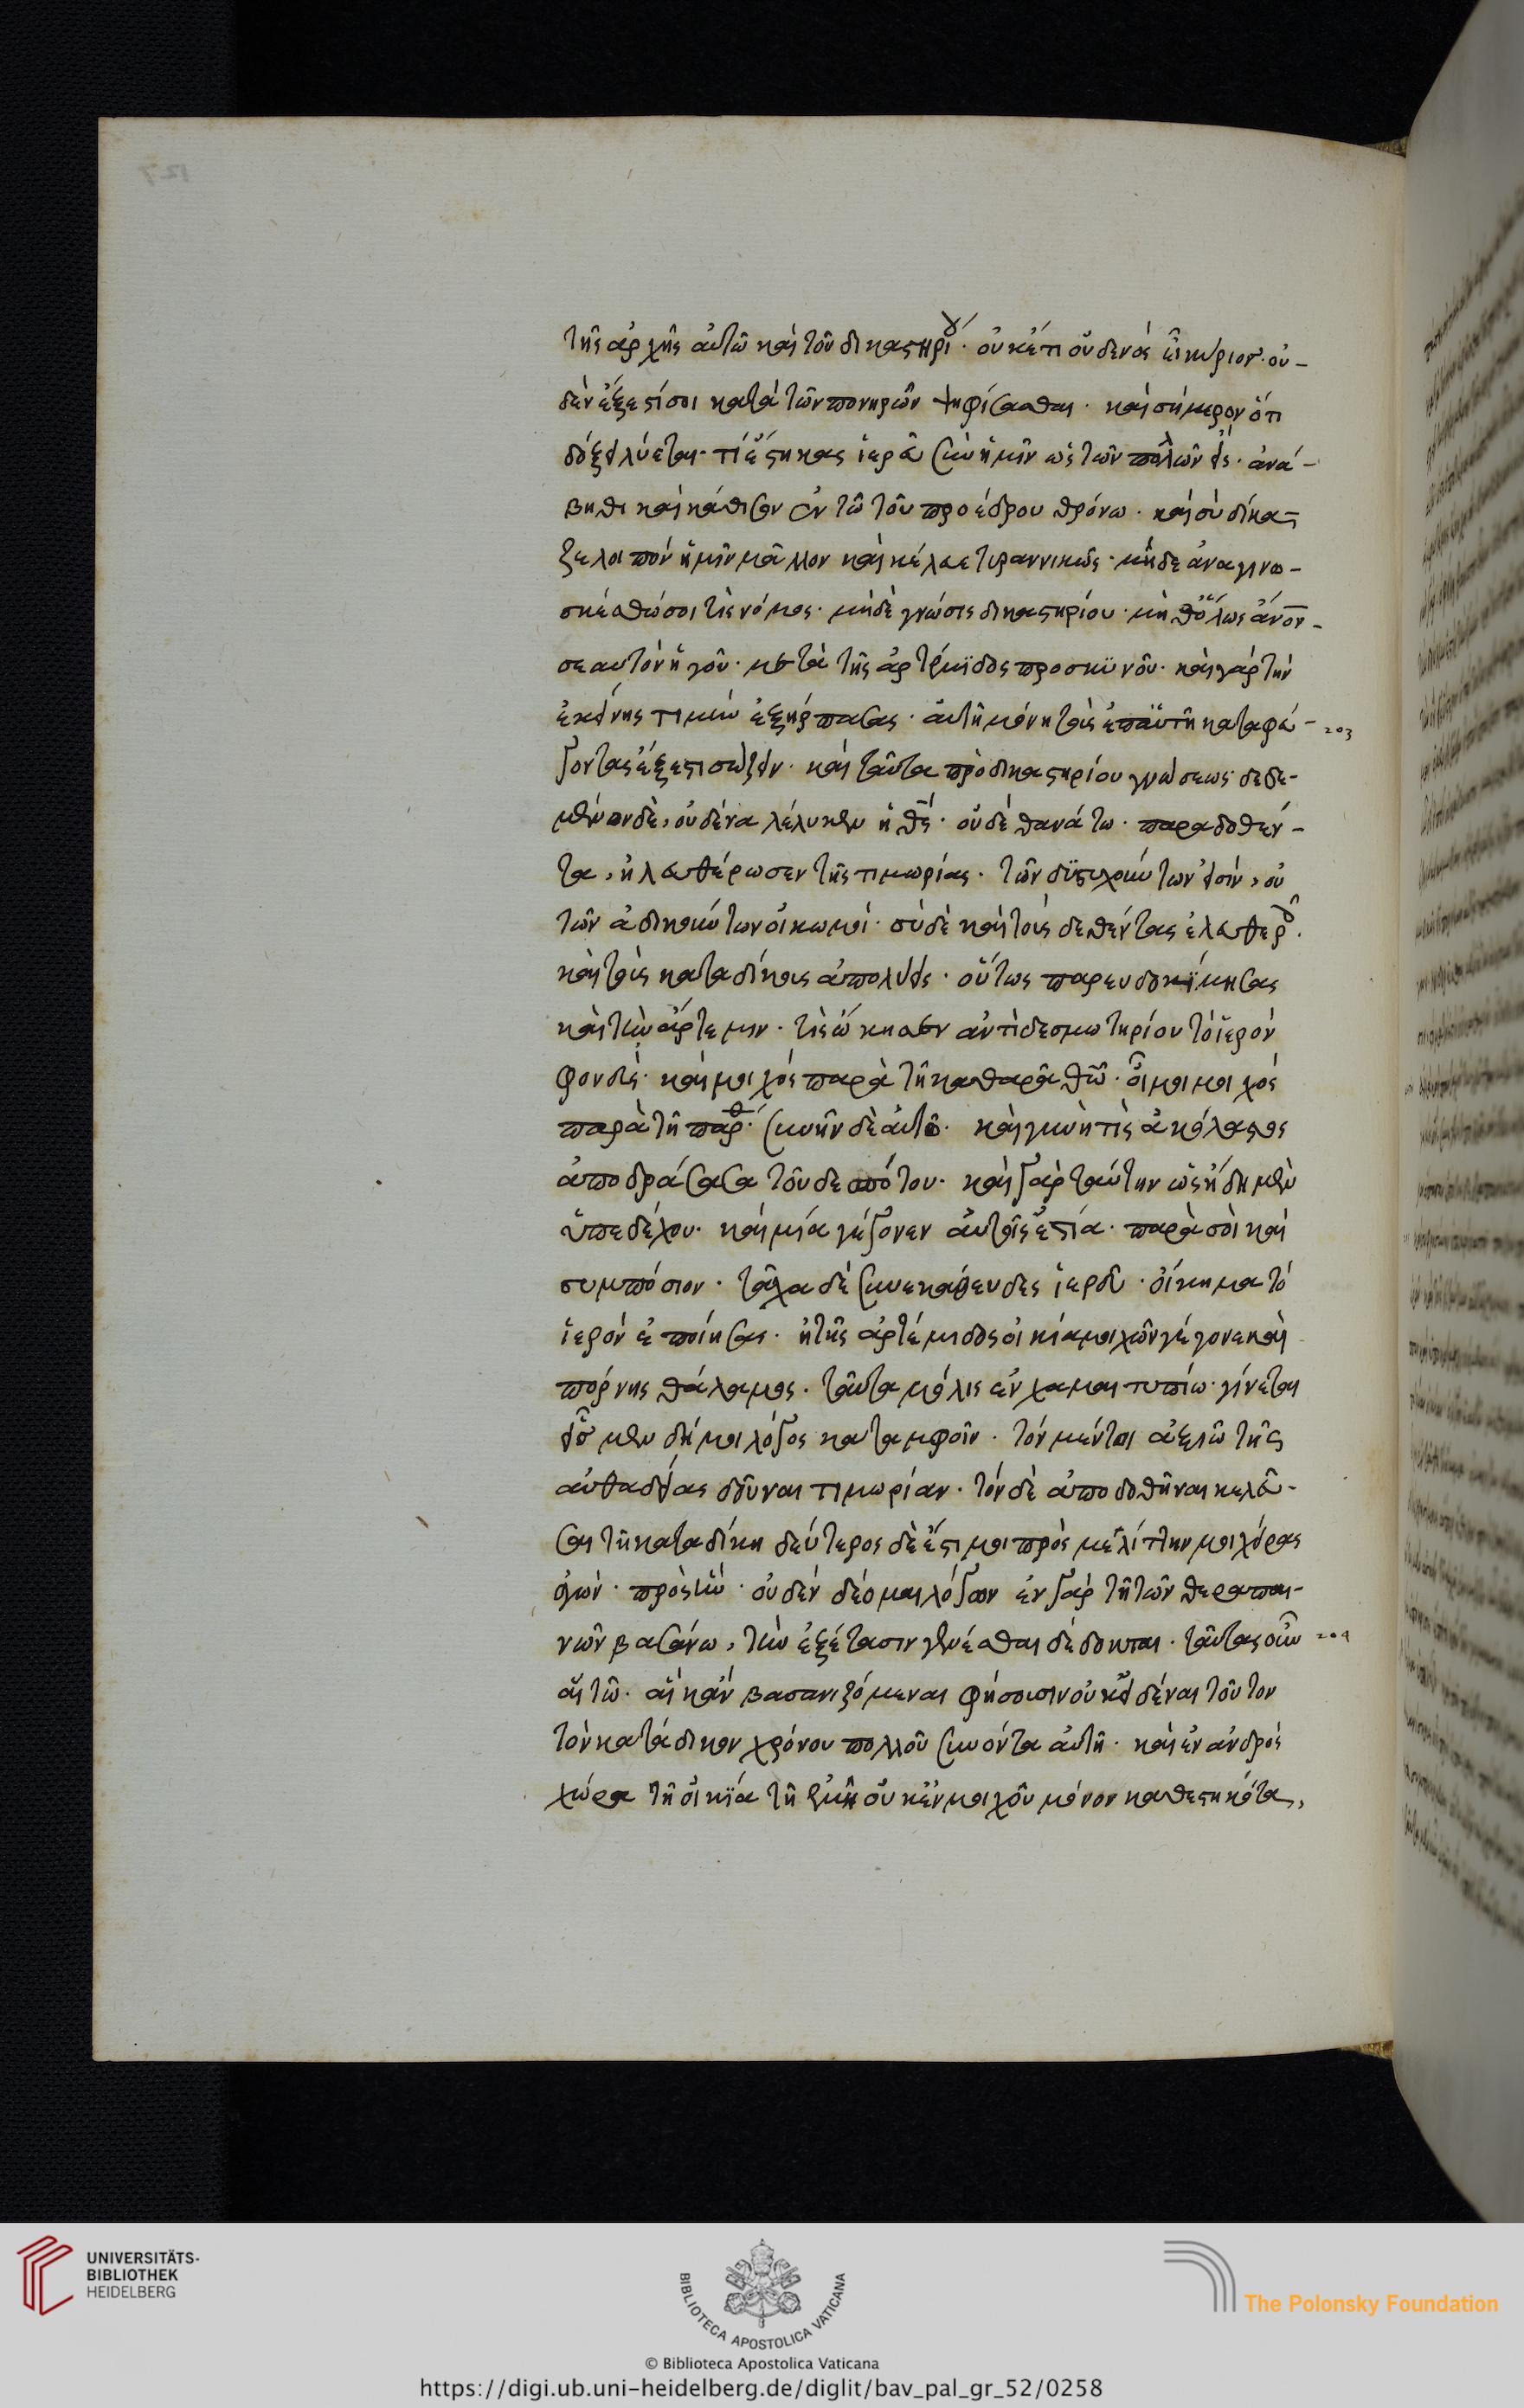 τῆς ἀρχῆς αὐτῶ καὶ τοῦ δικαστηρίου. οὐκέτι οὐδενὸς εἶ κύριος. οὐ-
δὲν ἔξεστί σοι κατὰ τῶν πονηρῶν ψηφίσασθαι. καὶ σήμερον ὅτι
δόξει λύεται. τί ἕστηκας ἱερεῦ σὺν ἡμῖν ὡς τῶν πολλῶν εἷς. ἀνά-
βηθι καὶ κάθισον ἐν τῶ τοῦ προέδρου θρόνω. καὶ σὺ δίκα-
ζε λοιπὸν ἡμῖν μᾶλλον καὶ κέλευε τυραννικῶς. μηδὲ ἀναγινω-
σκέσθω σοι τὶς νόμος. μηδὲ γνῶσις δικαστηρίου. μὴ θ' ὅλως ἄνον-
σεαυτὸν ἡγοῦ. μετὰ τῆς ἀρτέμϊδος προσκυνοῦ. καὶ γὰρ τὴν
ἐκείνης τιμὴν ἐξήρπασας. αὐτῆ μόνη τοὺς ἐπ' αὐτὴ καταφεύ-
γοντας ἔξεστι σώζειν. καὶ ταῦτα πρὸ δικαστηρίου γνώσεως δεδε-
μένον δὲ, οὐδένα λέλυκεν ἡ θεός. οὐδὲ θανάτω. παραδοθέν-
τα, ἠλευθέρωσεν τῆς τιμωρίας. τῶν δυστυχούντων εἰσὶν, οὐ
τῶν ἀδικούντων οἱ βωμοί. σὺ δὲ καὶ τοὺς δεθέντας ἐλευθεροῖς.
καὶ τοὺς καταδίκους ἀπολύεις. οὕτως παρευδοκΐμησας
καὶ τὴν ἄρτεμιν. τίς ὤκησεν ἀντὶ δεσμωτηρίου τὸ ἱερόν
φονεύς. καὶ μοιχὸς παρὰ τῆ καθαρᾶ θεῶ. οἴμοι μοιχός
παρὰ τῆ παρθένω. συνῆν δὲ αὐτῶ. καὶ γυνή τις ἀκόλαστος
ἀποδράσασα τοῦ δεσπότου. καὶ γὰρ ταύτην ὡς ἤδημεν
ὑπεδέχου. καὶ μία γέγονεν αὐτοῖς ἑστία. παρὰ σοὶ καὶ
συμπόσιον. τάχα δὲ συνεκάθευδες ἱερεῦ. οἴκημα τό
ἱερὸν ἐποίησας. ἡ τῆς ἀρτέμιδος οἰκία μοιχῶν γέγονε καὶ
πόρνης θάλαμος. ταῦτα μόλις ἐν χαμαιτυπίω γίνεται
εἷς μὲν δή μοι λόγος κατ' ἀμφοῖν. τὸν μέντοι ἀξιῶ τῆς
αὐθαδείας δοῦναι τιμωρίαν. τὸν δὲ ἀποδοθῆναι κελεῦ-
σαι τῆ καταδίκη δεύτερος δὲ ἔστι μοι πρὸς μελίτην μοιχείας
ἀγών. πρὸς ἣν. οὐδὲν δέομαι λόγων ἐν γὰρ τῆ τῶν θεραπαι-
νῶν βασάνω, τὴν ἐξέτασιν γενέσθαι δέδοκται. ταύτας οὖν
αἰτῶ. αἳ κἂν βασανιζόμεναι φήσωσιν οὐκ εἰδέναι τοῦτον
τὸν κατάδικον χρόνου πολλοῦ συνόντα αὐτῆ. καὶ ἐν ἀνδρός
χώρα τῆ οἰκία τῆ ἐμῆ οὐκ ἐν μοιχοῦ μόνον καθεστηκότα,
203
204
127
UNIVERSITÄTS-
BIBLIOTHEK
HEIDELBERG
BIBLIOTECA APOSTOLICA VATICANA
The Polonsky Foundation
© Biblioteca Apostolica Vaticana
https://digi.ub.uni-heidelberg.de/diglit/bav_pal_gr_52/0258